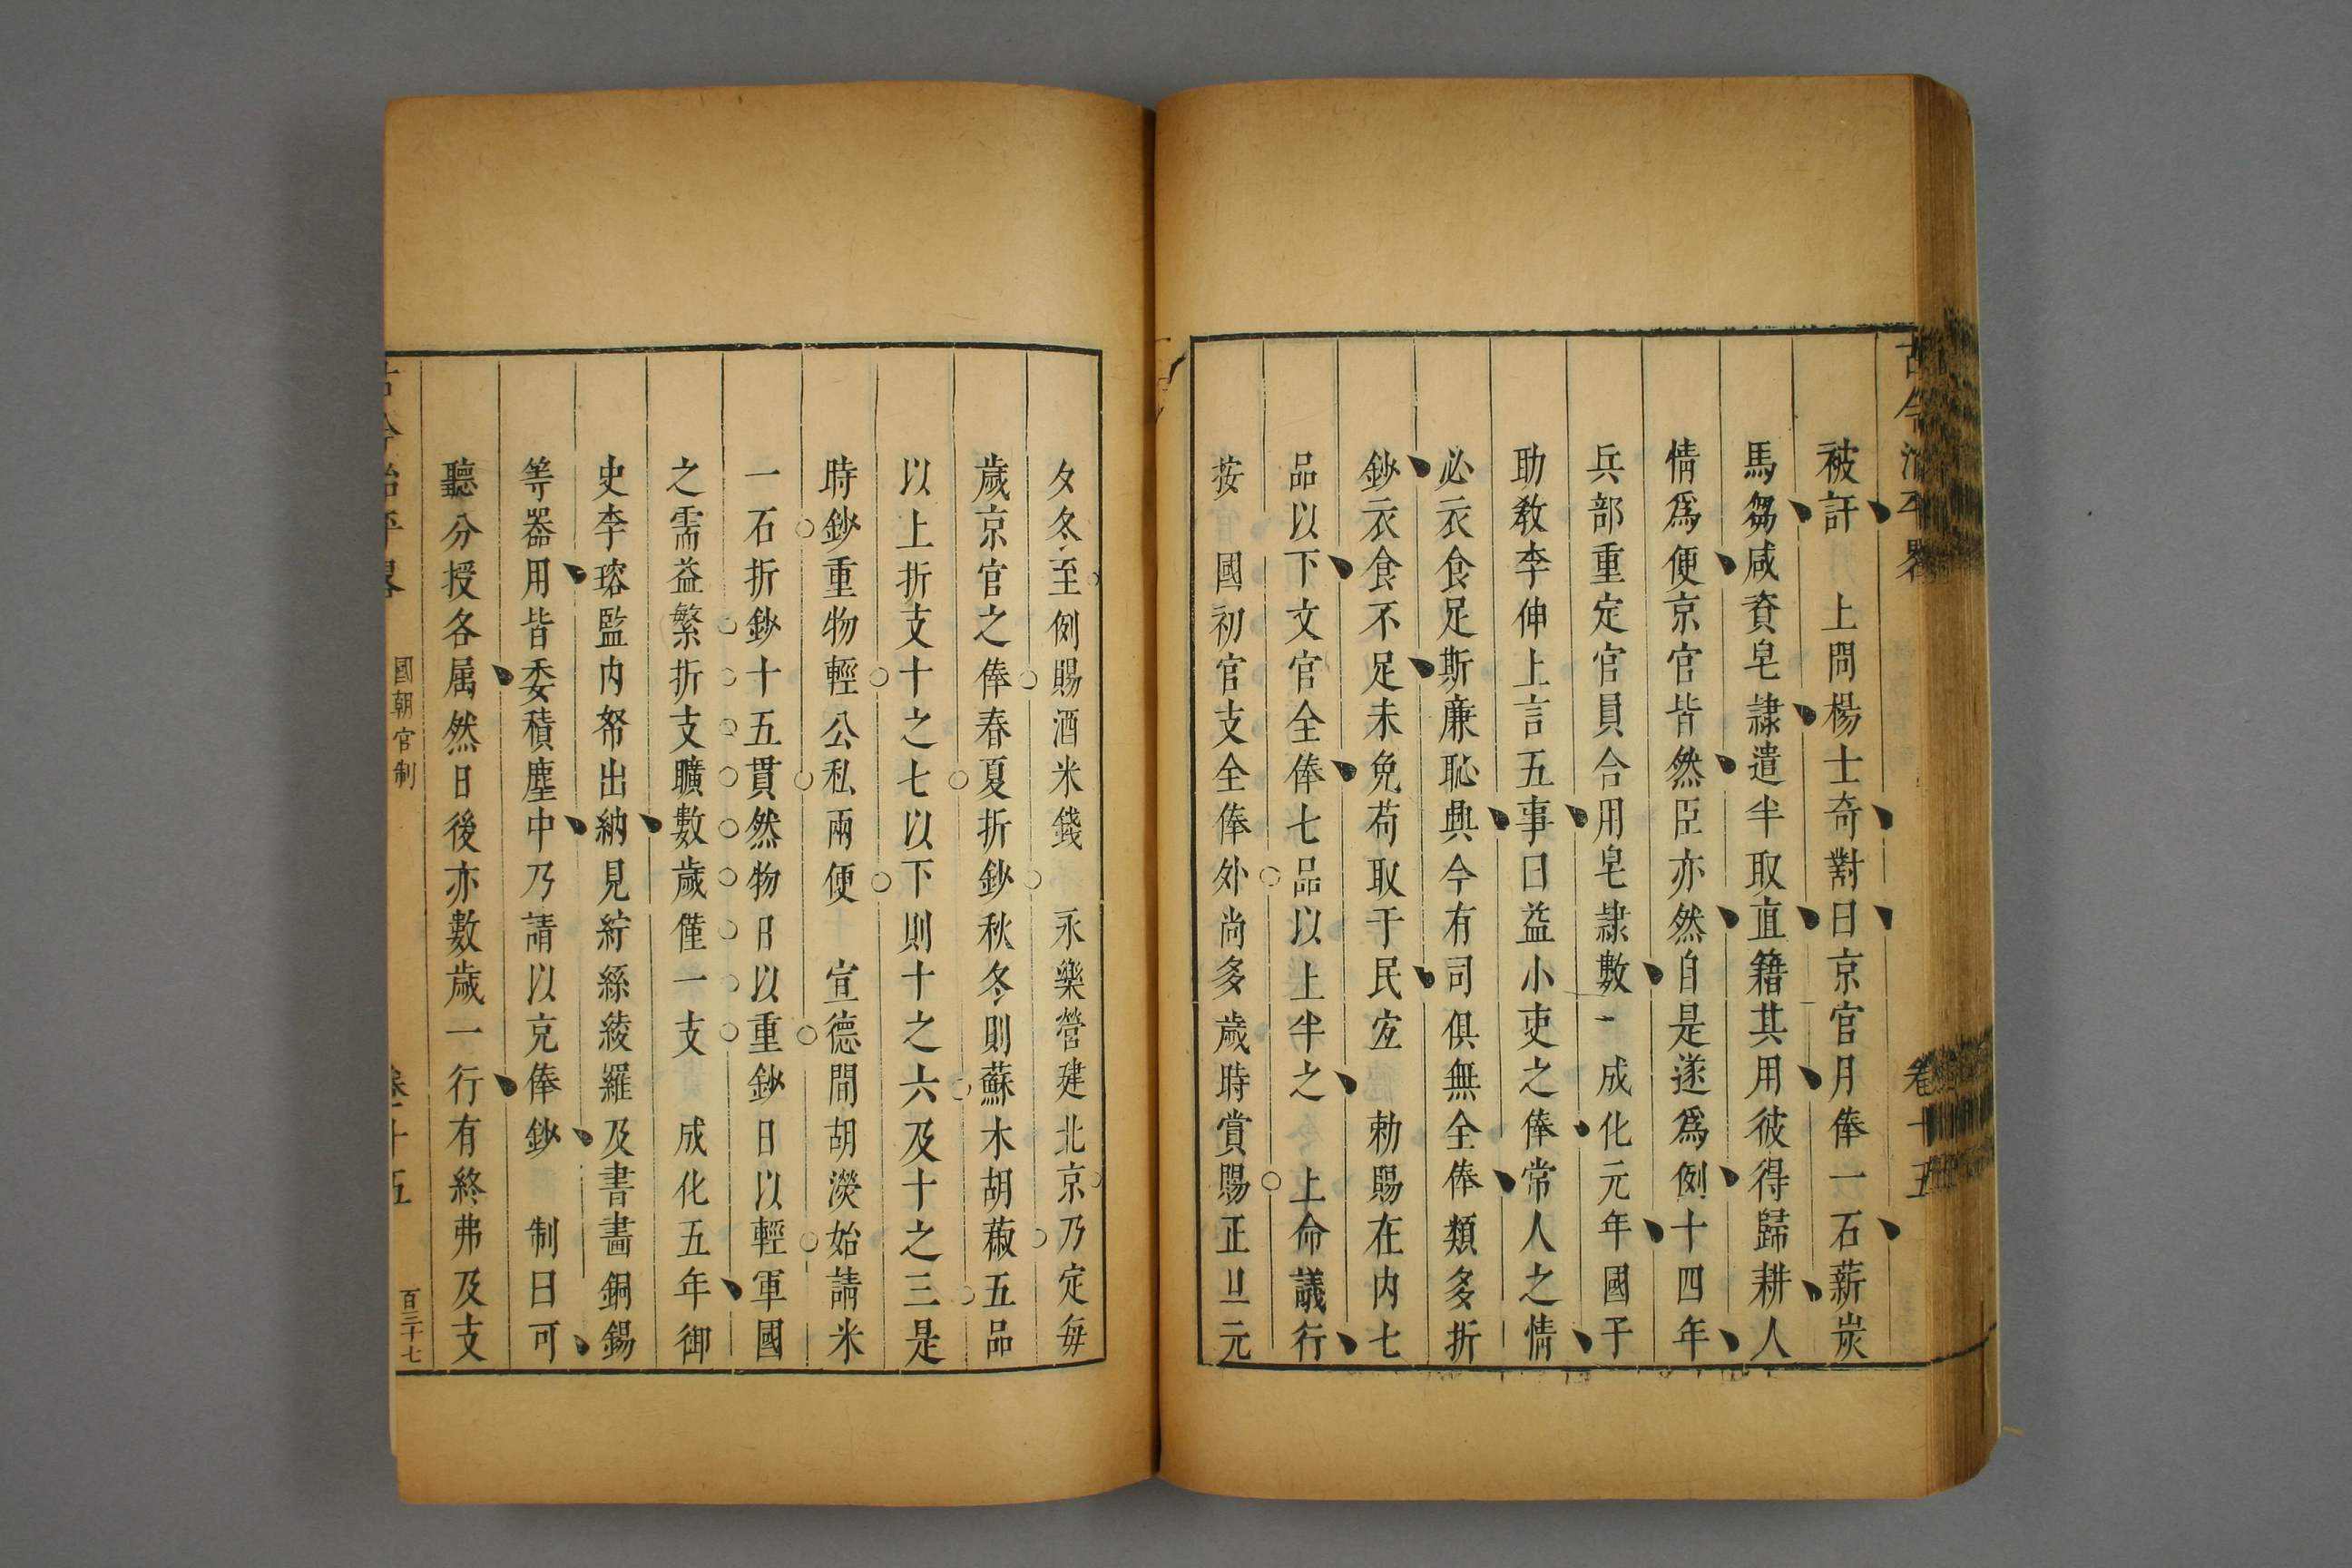 古今治平畧
卷十五
被訐　上問楊士奇對曰京官月俸一石薪炭
馬芻咸資皂隷遣半取直籍其用彼得歸耕人
情爲便京官皆然臣亦然自是遂爲例十四年
兵部重定官員合用皂隷數　成化元年國子
助敎李伸上言五事曰益小吏之俸常人之情
必衣食足斯廉恥興今有司俱無全俸類多折
鈔衣食不足未免苟取于民宐　勅賜在内七
品以下文官全俸七品以上半之　上命議行
按　國初官支全俸外尚多歲時賞賜正旦元
夕冬至例賜酒米錢　永樂營建北京乃定每
歲京官之俸春夏折鈔秋冬則蘇木胡椒五品
以上折支十之七以下則十之六及十之三是
時鈔重物輕公私兩便　宣德間胡濙始請米
一石折鈔十五貫然物日以重鈔日以輕軍國
之需益繁折支曠數歲僅一支　成化五年御
史李瑢監内帑出納見紵絲綾羅及書畵銅錫
等器用皆委積塵中乃請以充俸鈔　制曰可
聽分授各属然日後亦數歲一行有終弗及支
古今治平畧
國朝官制
卷十五
百三十七